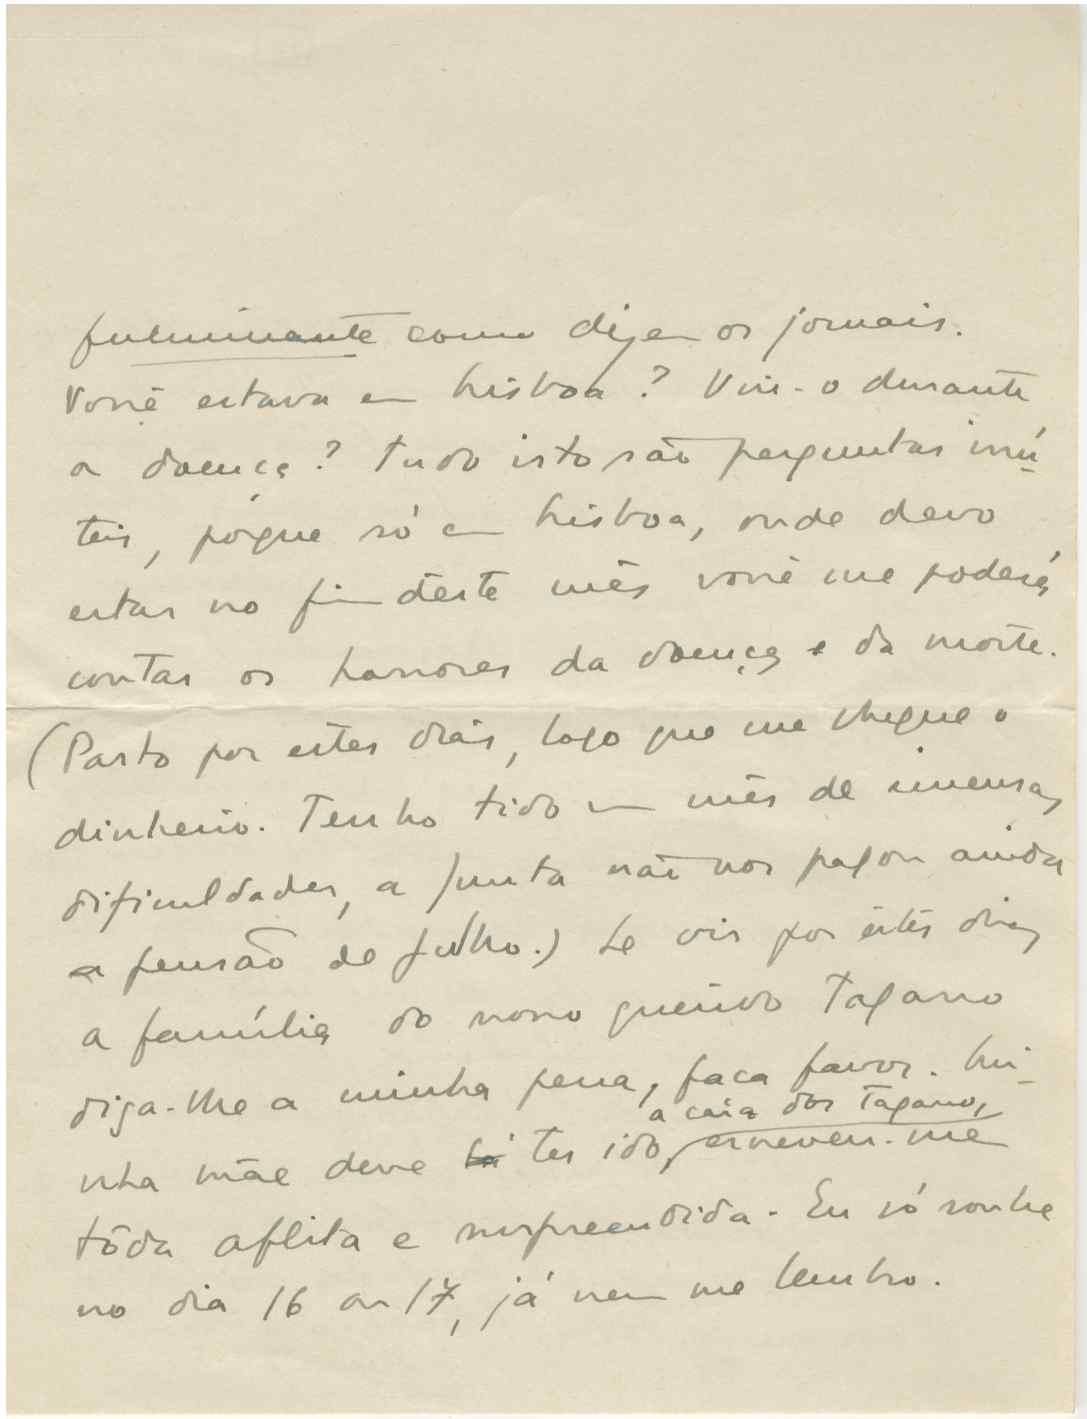 fulminante como dizem os jornais.
Você estava em Lisboa? Viu-o durante
a doença? Tudo isto são perguntas inú-
teis, porque só em Lisboa, onde devo
estar no fim dêste mês você me poderá
contar os horrores da doença e da morte.
(Parto por êstes dias, logo que me chegue o
dinheiro. Tenho tido um mês de imensas
dificuldades, a Junta não nos pagou ainda
a pensão de Julho.) Se vir por êstes dias
a família do nosso querido Tagarro
diga-lhe a minha pena, faça favor. Mi-
a casa dos Tagarro,
nha mãe deve ter ido, escreveu-me
tôda aflita e surpreendida. Eu só soube
no dia 16 ou 17, já nem me lembro.